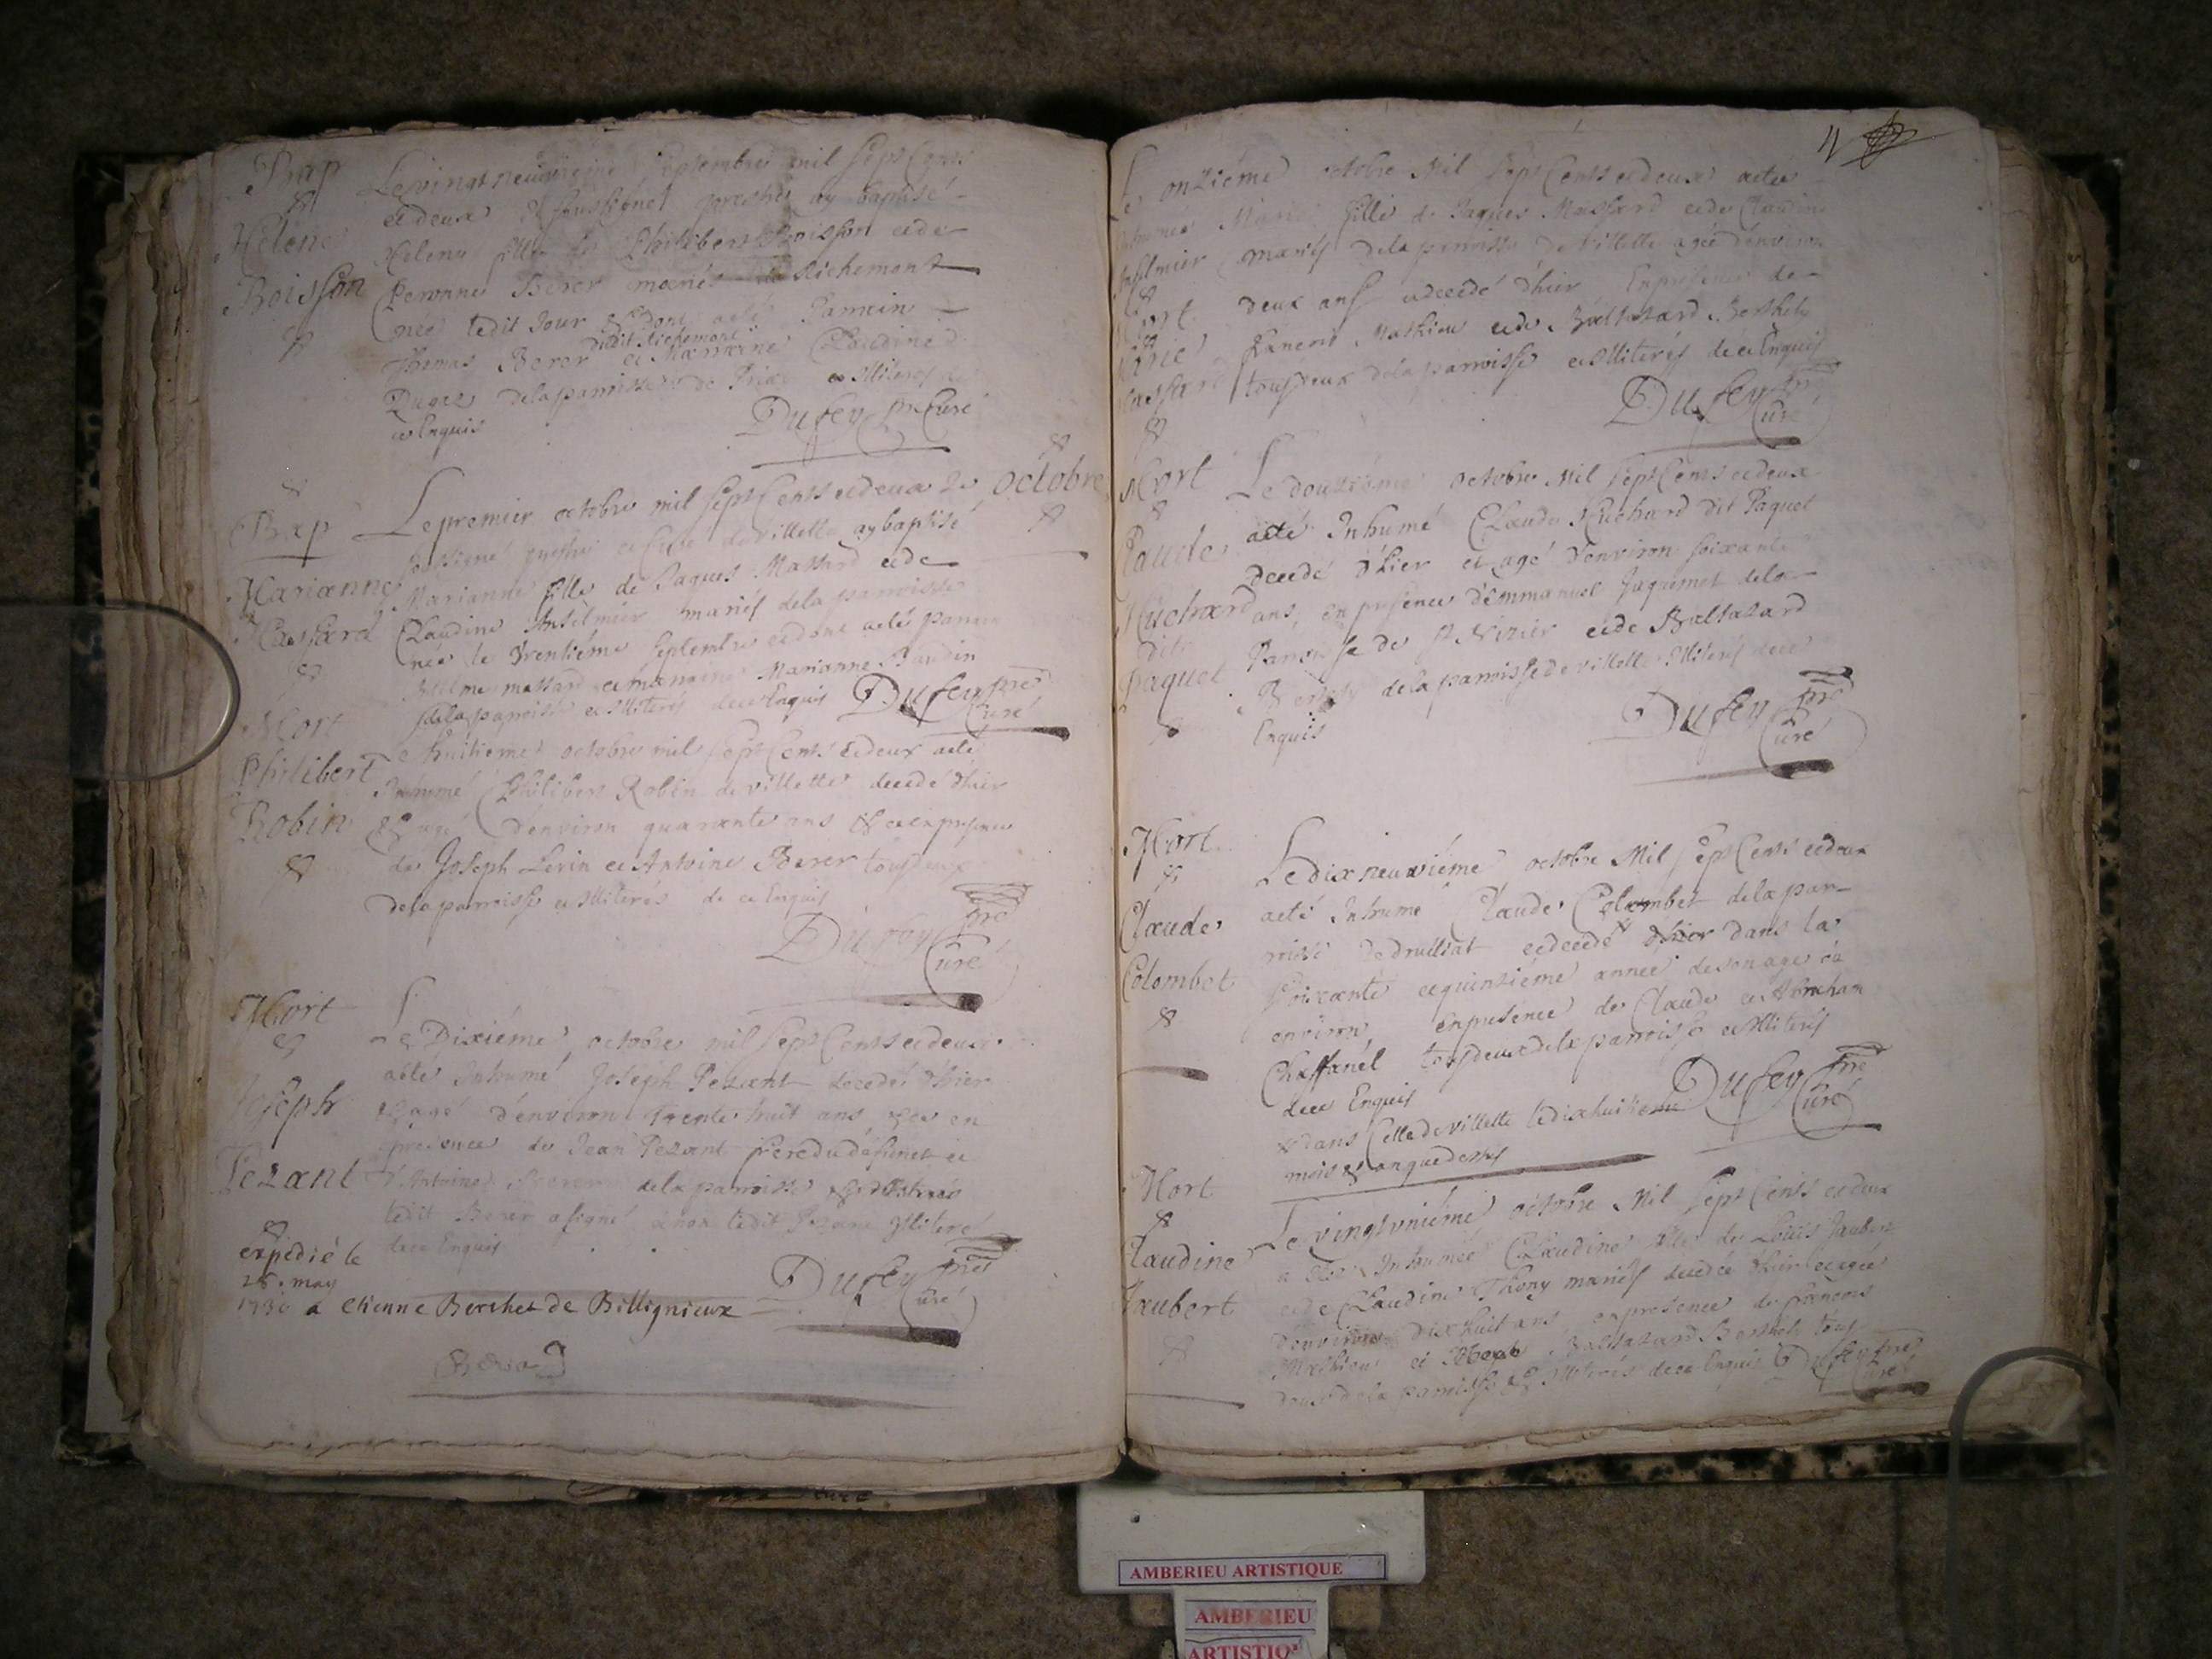 Bap
Helene
Boisson
Le vingt neuvieme septembre mil sept Cens
et deux Je soussigné prestre ay baptisé
Helene fille de Philibert Boisson et de
Peronne Berer mariés de Richemont
née ledit Jour & dont a eté Parrain
dudit Richemont
Thomas Berer et Marraine Claudine
de la parroisse de Priay et Illiterés de
ce Enquis
Dufey pre Curé
octobre
Bap
Marianne
Massard
Le premier octobre mil sept Cents et deux Je
soussigné prestre et Curé de villette ay baptisé
Marianne fille de Jaques Massard et de
Claudine Anselmier mariés de la parroisse
née le trentiéme septembre et dont a eté parrain
massard et marraine Marianne
de la parroisse et Illiterés de ce Enquis Dufey pre
Curé
Mort
Philibert
Robin
Le huitieme octobre mil sept Cents et deux a eté
Inhumé Philibert Robin de villette decedé d'hier
& agé d'environ quarante ans & ce en presence
de Joseph Levin et Antoine Berer tous deux
de la parroisse et Illiterés de ce Enquis
Dufey pre
Curé
Mort
Joseph
Pezant
Le Dixiéme octobre mil sept Cents et deux
a eté Inhumé Joseph Pezant decedé d'hier
& agé d'environ trente huit ans, & ce en
presence de Jean Pezant frere du défunct et
d'Antoine de la parroisse
ledit Berer a signé & non ledit Pezant Illiteré
de ce Enquis
Dufey pre
Curé
expédié le
28. may
1730 a etienne Berthet de Billignieux
11
Anselmier
Mort
Marie
Massard
Le onziéme octobre Mil Sept Cents et deux a eté
Inhumée Marie fille de Jaques Massard et de Claudine
mariés de la parroisse de Villette agée d'environ
deux ans et decedé d'hier En presence de
François Mathieu et de Baltazard Berthet
tous deux de la parroisse et Illiterés de ce Enquis
Dufey pre
Curé
Mort
Claude
Huchard
dit
Paquet
Le douziéme octobre Mil Sept Cents et deux
a eté Inhumé Claude Huchard dit Paquet
decedé d'hier et agé d'environ soixante
ans, en presence d'Emmanuel Jaquemet de la
Parroisse de St Nizier et de Baltazard
Berthet de la parroisse de villette Illiterés de ce
Enquis
Dufey pre
Curé
Mort
Claude
Colombet
Le dix neuviéme octobre Mil Sept Cents et deux
a eté Inhumé Claude Colombet de la par-
roisse de druillat et decedé d'hier dans la
soixante et quinziéme année de son age ou
environ, En presence de Claude et Abraham
Chaffanel tous deux de la parroisse et Illiterés
de ce Enquis
& dans Celle de Villette le dix huitieme
mois & an que dessus
Dufey pre
Curé
Mort
Claudine
Jaubert
Le vingt uniéme octobre Mil Sept Cents et deux
a eté Inhumée Claudine fille de Louis Jaubert
et de Claudine Thony mariés decedée d'hier et agée
d'environ dix huit ans en presence de françois
Mathieu et Baltazard Berthet tous
deux de la parroisse & Illiterés de ce Enquis Dufey pre
Curé
AMBERIEU ARTISTIQUE
AMBERIEU
ARTISTIQ